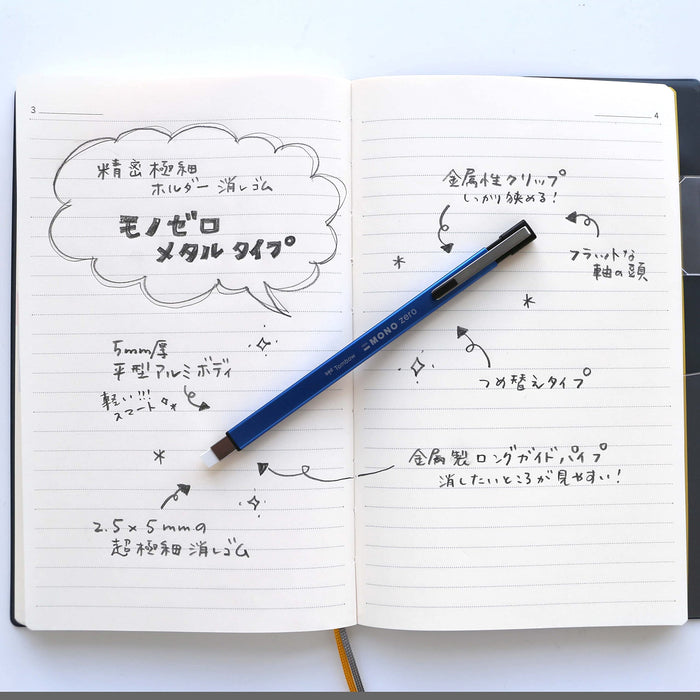 3
精密極細
ホルダー消しゴム
モノゼロ
メタルタイプ
5mm厚
平型アルミボディ
軽い!!!
スマート
2.5×5mmの
超極細消しゴム
4
金属性クリップ
しっかり狭める!
フラットな
軸の頭
Tombow MONO zero
つめ替えタイプ
金属製ロングガイドパイプ
消したいところが見やすい!